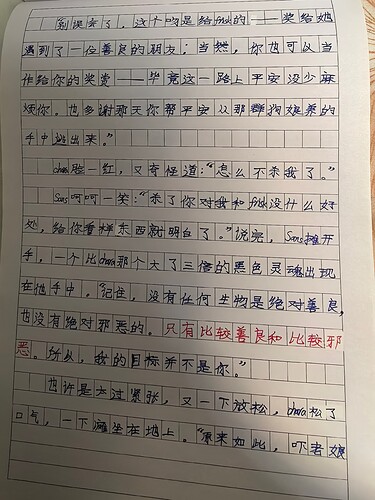 别误会了，这个吻是给frisk的——奖给她
遇到了一位善良的朋友；当然，你也可以当
作给你的奖赏——毕竟这一路上平安没少麻
烦你。也多谢那天你帮平安从那群狗娘养的
手中逃出来。”
chara脸一红，又奇怪道：“怎么不杀我了。”
Sans呵呵一笑：“杀了你对我和frisk没什么好
处，给你看样东西就明白了。”说完，Sans摊开
手，一个比chara那个大了三倍的黑色灵魂出现
在他手中，“记住，没有任何生物是绝对善良，
也没有绝对邪恶的。只有比较善良和比较邪
恶。所以，我的目标并不是你。”
也许是太过紧张，又一下放松，chara松了
口气，一下瘫坐在地上。“原来如此，吓老娘